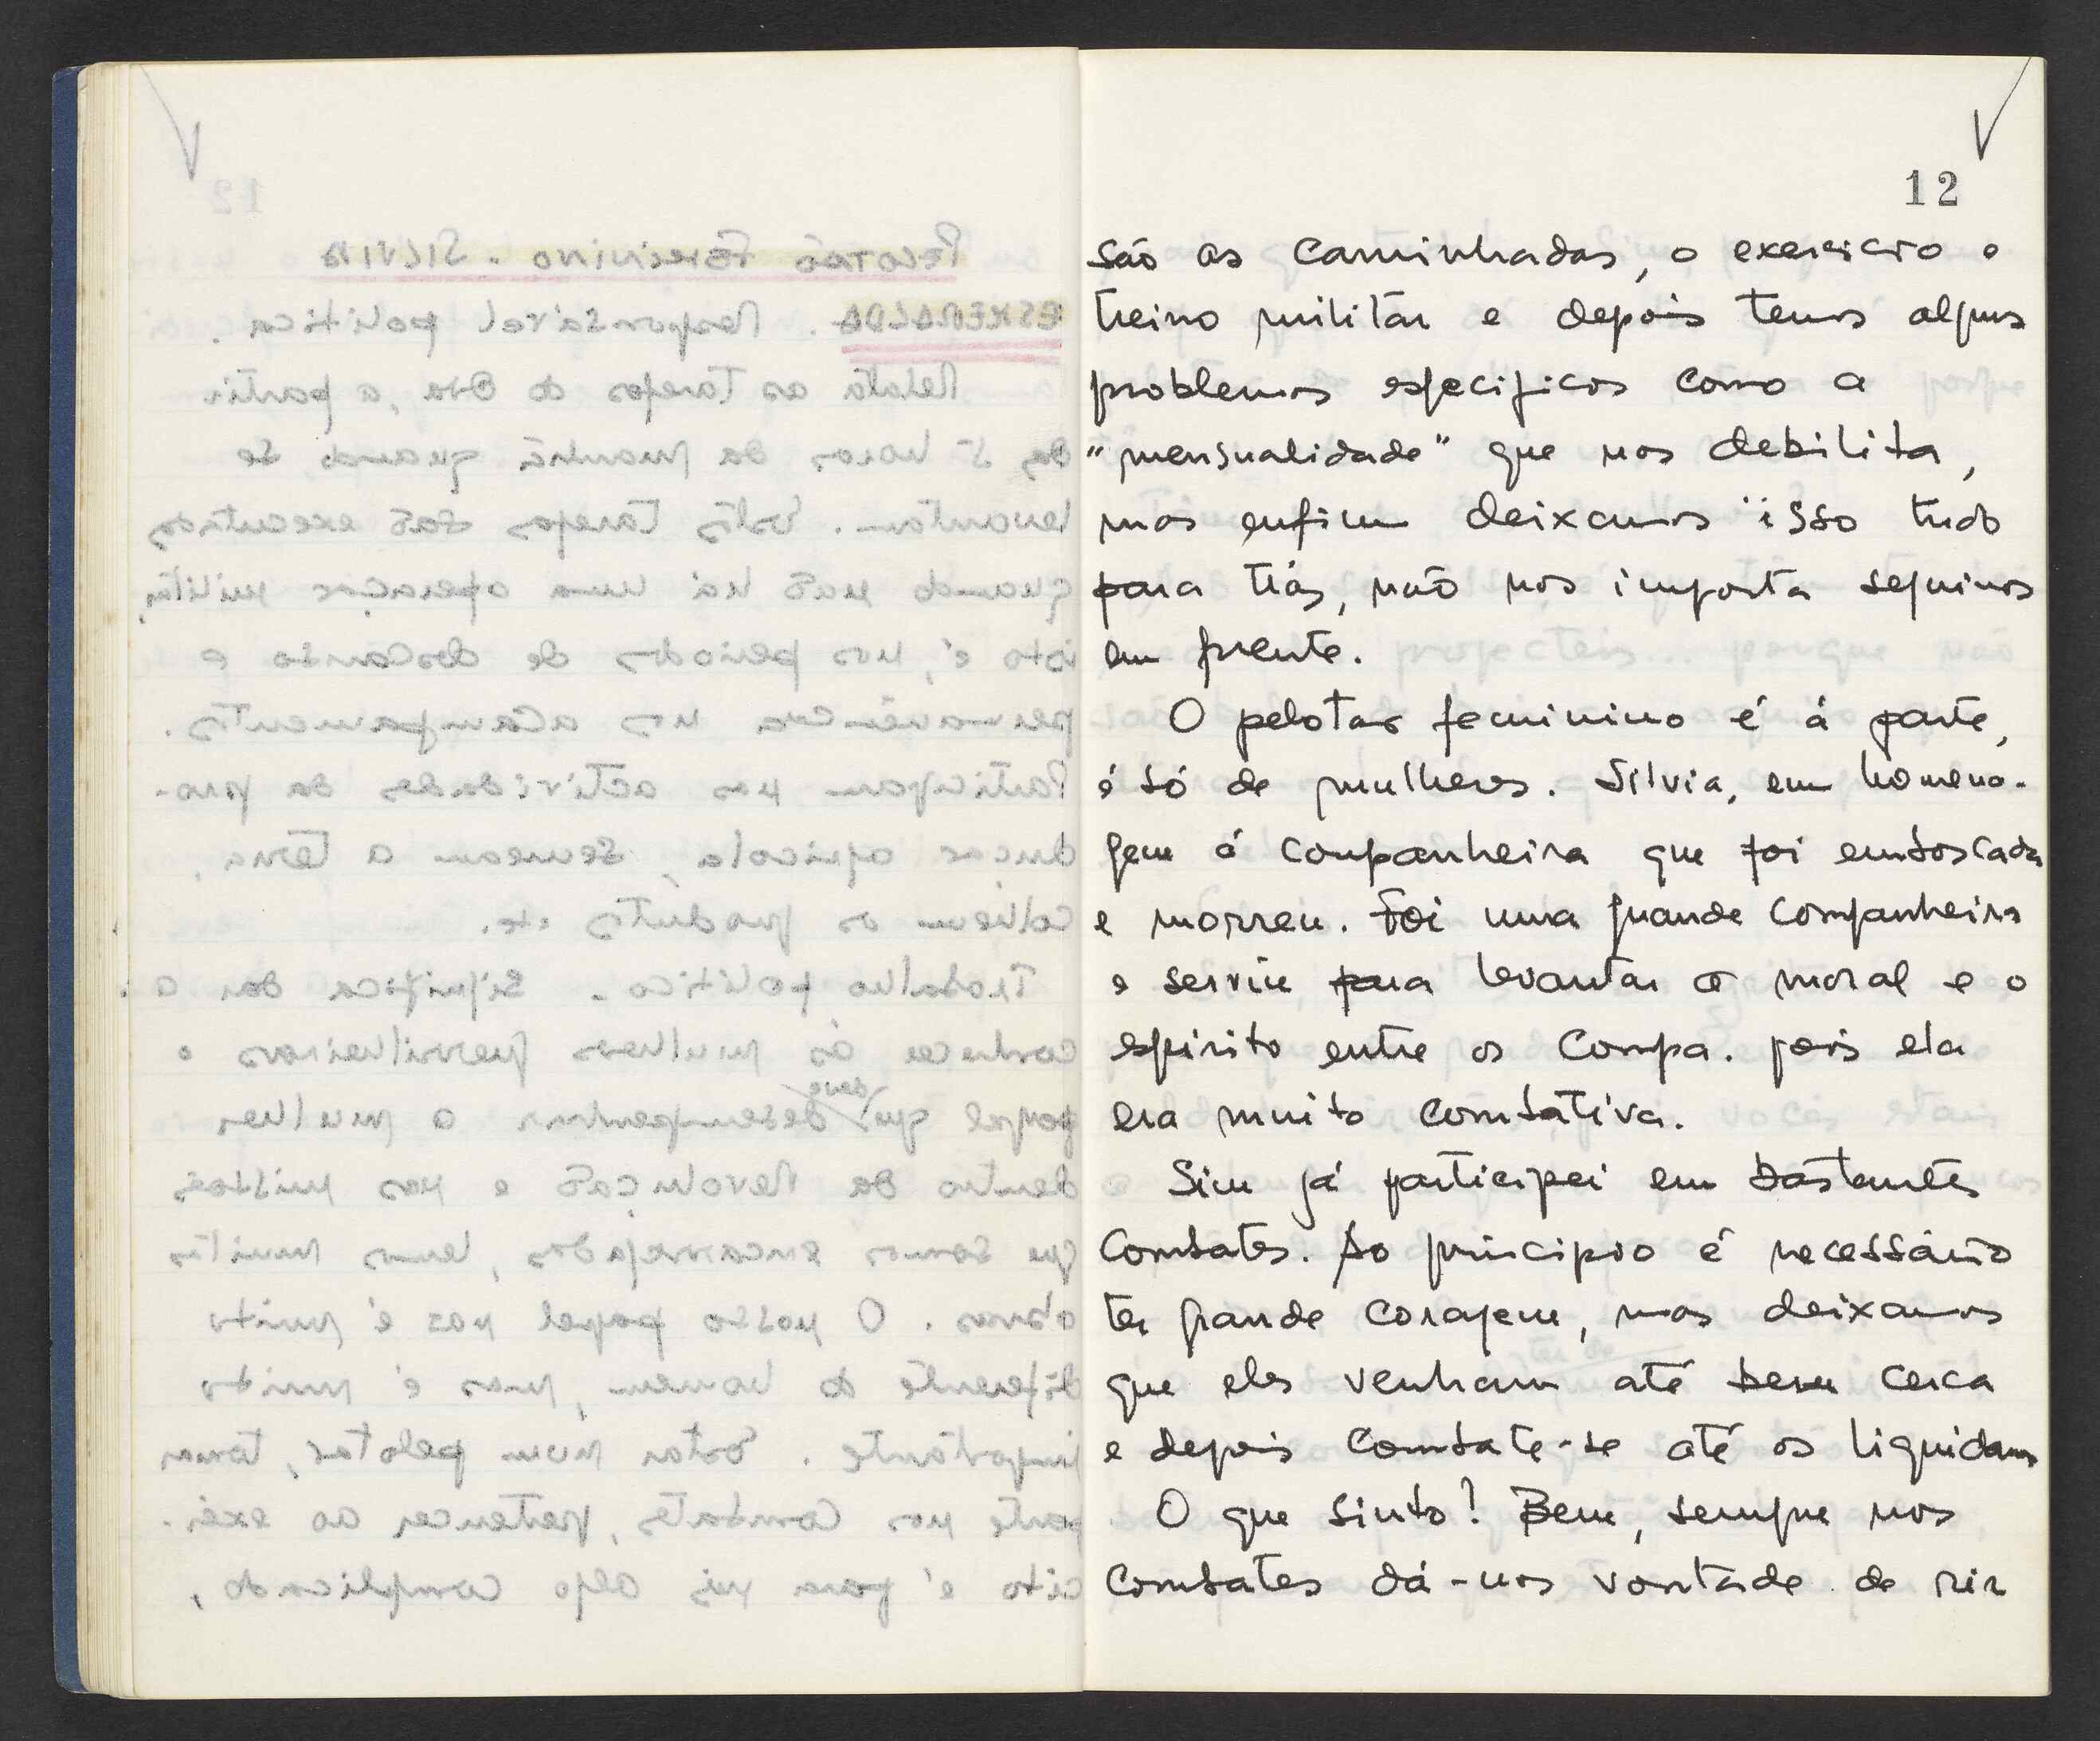 12
são as caminhadas, o exercicio o
treino militar e depois temos alguns
problemas especificos como a
"mensualidade" que nos debilita,
mas enfim deixamos isso tudo
para trás, não nos importa seguimos
em frente.
O pelotao feminino é á parte,
é só de mulheres. Silvia, em homena-
gem á companheira que foi emboscada
e morreu. Foi uma grande companheira
e serviu para levantar a moral e o
espirito entre os compa. pois ela
era muito combativa.
Sim já participei em bastantes
combates. Ao principio é necessário
ter grande coragem, mas deixamos
que eles venham até bem cerca
e depois combate-se até os liquidarmos
O que sinto? Bem, sempre nos
combates dá-nos vontade de rir